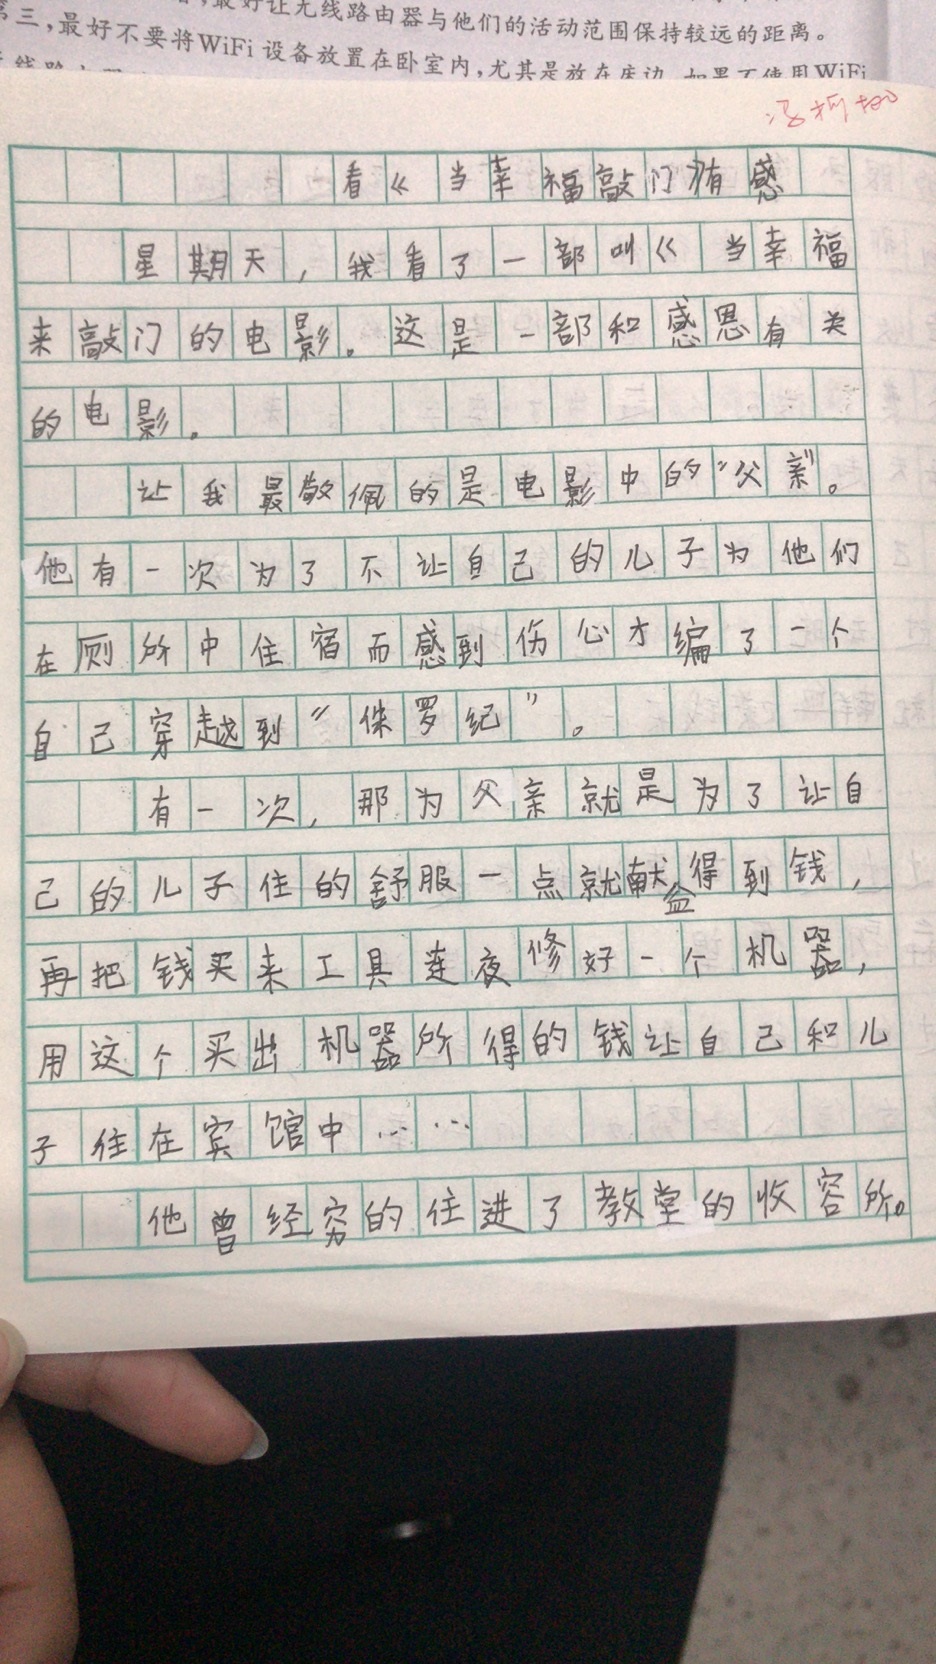 第三,最好不要将WiFi设备放置在卧室内,尤其是放在床边。如果不使用WiFi
最好让无线路由器与他们的活动范围保持较远的距离。
看《当幸福敲门》有感
星期天，我看了一部叫《当幸福
来敲门的电影。这是一部和感恩有关
的电影。
让我最敬佩的是电影中的“父亲”。
他有一次为了不让自己的儿子为他们
在厕所中住宿而感到伤心才编了一个
自己穿越到“侏罗纪”。
有一次，那为父亲就是为了让自
己的儿子住的舒服一点就献血得到钱，
再把钱买来工具连夜修好一个机器，
用这个买出机器所得的钱让自己和儿
子住在宾馆中……
他曾经穷的住进了教堂的收容所。